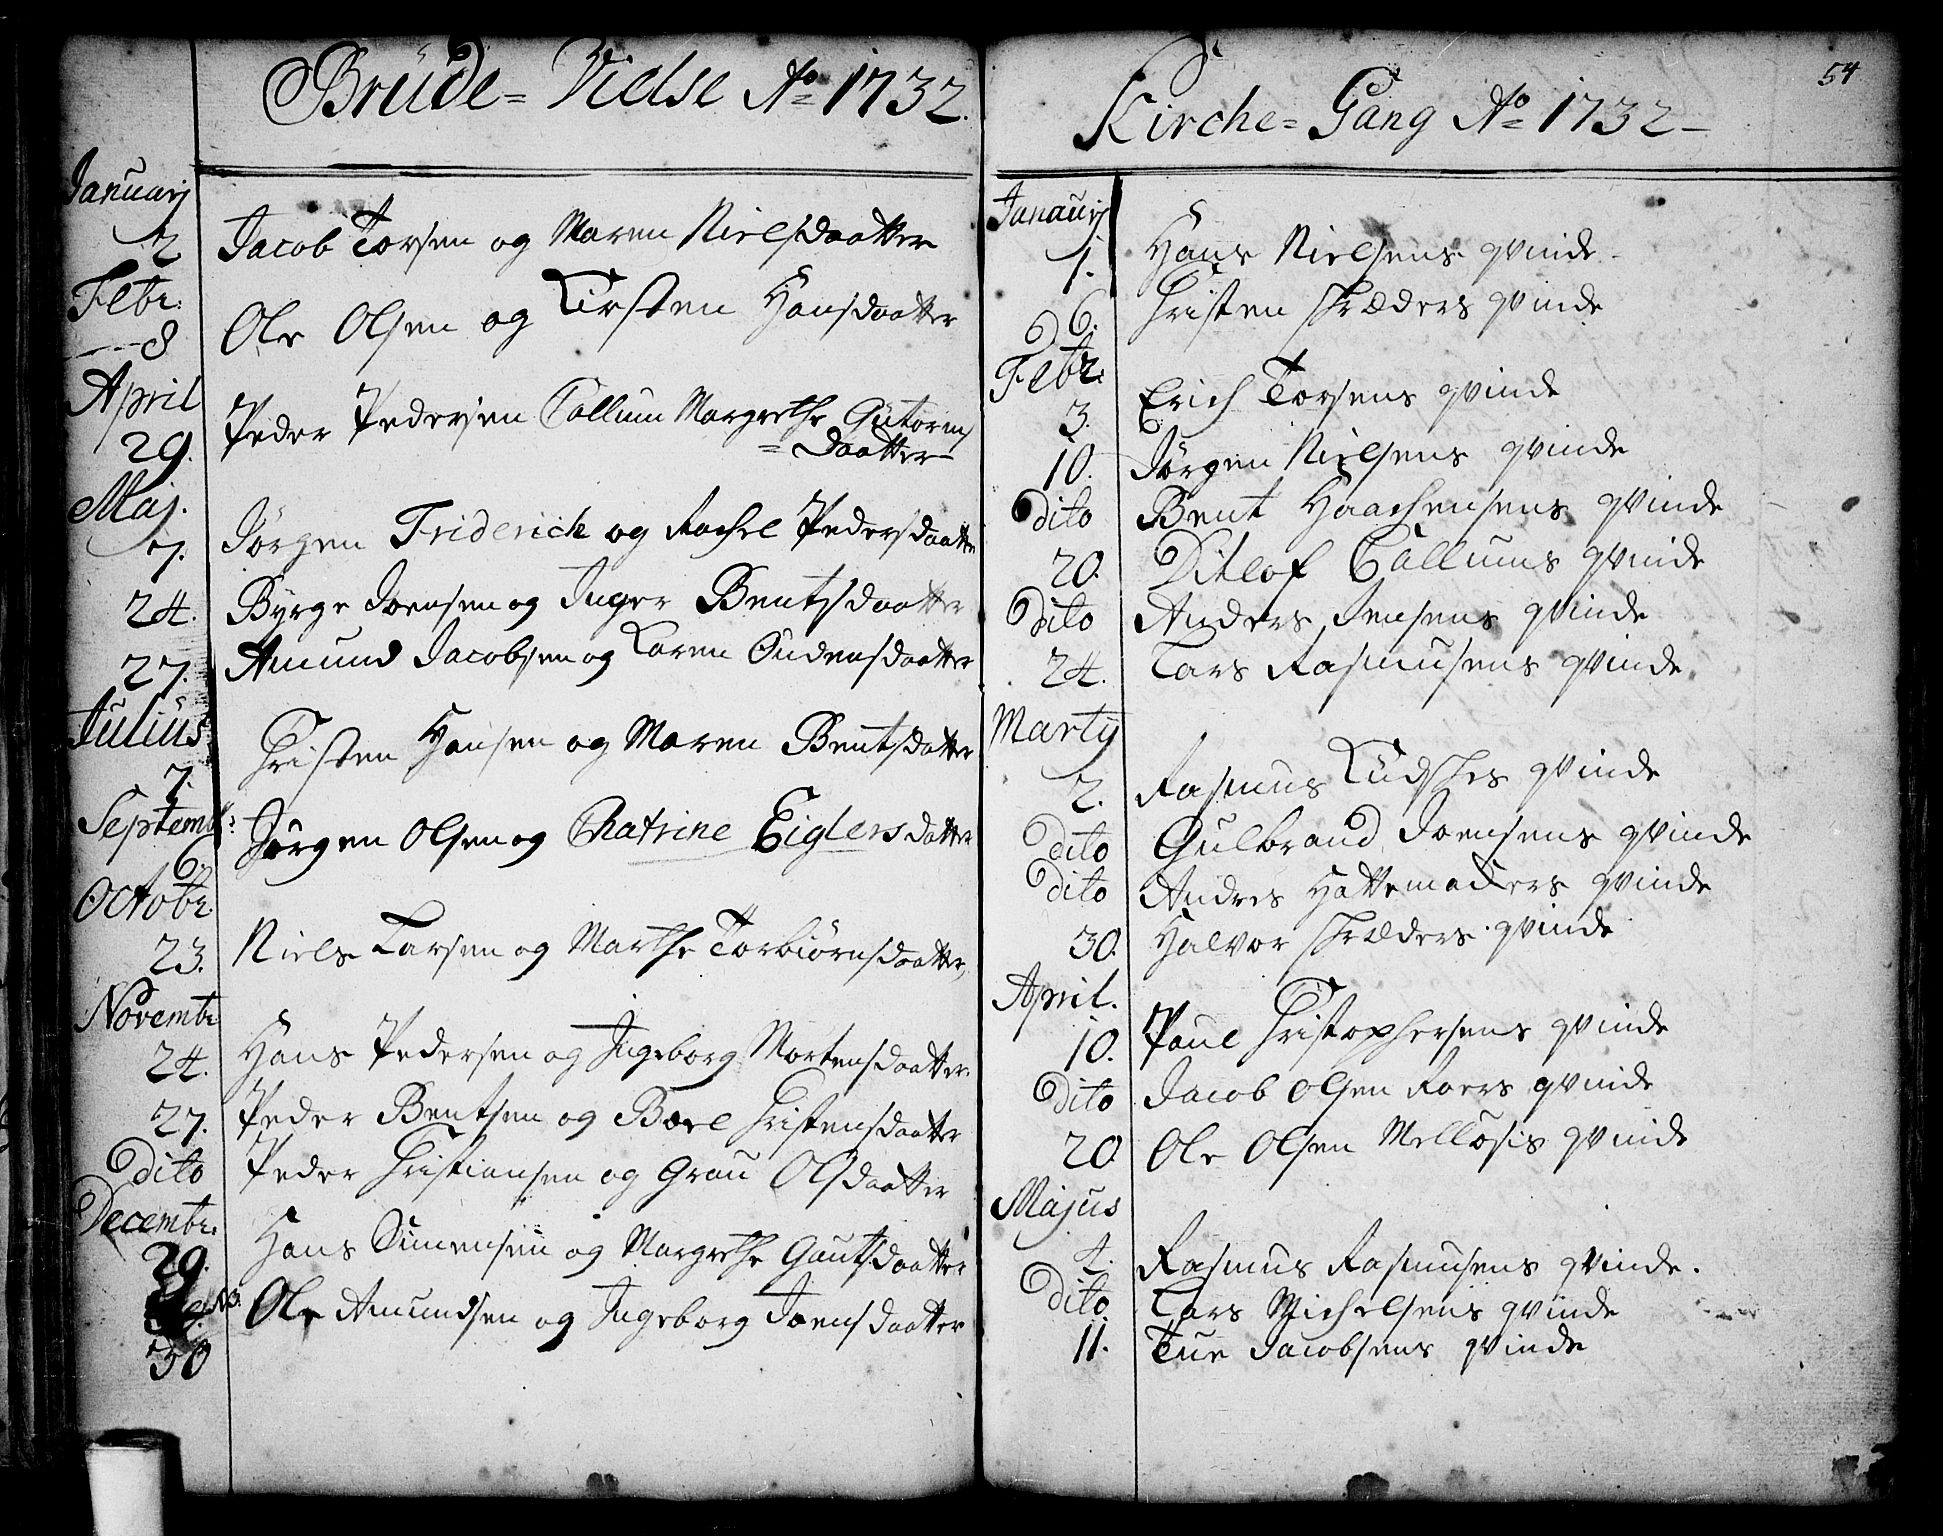 Brüde- Vielse Aº 1732.
Januarij
2 Jacob Torsen og Maren Nielsdaatter
Febr:
8 Ole Olsen og Kirsten Hansdaatter
April
29. Peder Pedersen Collum Margrethe Gutorms
= daatter
Maj.
7. Jørgen Friderich og Rachel Pedersdaatter
24. Byrge Joensen og Inger Bentsdaatter
27. Amund Jacobsen og Karen Eudensdaatter
Julius
7. Christen Hansen og Maren Bentsdatter
Septemb:
6 Jørgen Olsen og Chatrine Eiglersdatter
Octobr.
23. Niels Larsen og Marthe Torbiørnsdaatter
Novembr
24. Hans Pedersen og Ingeborg Mortensdaatter
27. Peder Bentsen og Boel Christensdaatter
Dito Peder Christiansen og Grau Olsdaatter
Decembr.
29. Hans Simensen og Margrethe Gautsdaatter
30 Ole Amundsen og Ingeborg Joensdaatter
54
Kirche- Gang Aº 1732
Janauij
1. Hans Nielsens qvinde
6. Christen Skræders qvinde
Febr.
3. Erich Torsens qvinde
10. Jørgen Nielsens qvinde
Dito Bent Haachensens qvinde
20. Ditlof Collums qvinde
Dito Anders Jensens qvinde
24. Lars Rasmusens qvinde
Martij
2. Rasmus Kudskes qvinde
Dito Gulbrand Joensens qvinde
Dito Andres Hattemackers qvinde
30. Halvor Skræders qvinde
April.
10. Paul Christophersens qvinde
Dito Jacob Olsen Roers qvinde
20 Ole Olsen Mellosis qvinde
Majus
4. Rasmus Rasmusens qvinde.
Dito Lars Michelsens qvinde
11. Tue Jacobsens qvinde